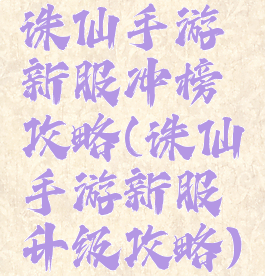 诛仙手游
新服冲榜
攻略(诛仙
手游新服
升级攻略)